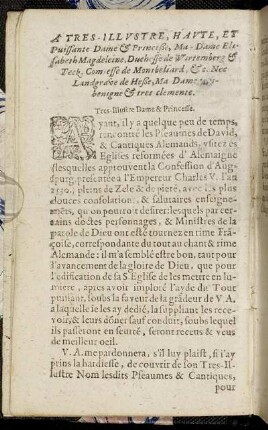 A TRES-ILLVSTRE, HAVTE, ET
Puissante Dame & Princesse, Ma-Dame Eli-
sabeth Magdeleine, Duchesse de Wirtemberg &
Teck, Comtesse de Montbeliard, &c. Nee
Landgrave de Hesse, Ma Dame
benigne & tres clemente.
Tres-Illustre Dame & Princesse.
Ayant, il y a quelque peu de temps,
rencontré les Pseaumes de David,
& Cantiques Alemands, vsitez és
Eglises reformées d'Alemaigne
(lesquelles approuvent la Confession d'Aug-
spurg, presentee a l'Empereur Charles V. l'an
1530.) pleins de Zele & de pieté, avec les plus
douces consolations, & salutaires enseigne-
mẽts, qu'on pourroit desirer: lesquels par cer-
tains doctes personnages, & Ministres de la
parole de Dieu ont esté tournez en rime Frã-
çoise, correspondante du tout au chant & rime
Alemande: il m'a semblé estre bon, tant pour
l'avancement de la gloire de Dieu, que pour
l'edification de sa S. Eglise de les mettre en lu-
miere, apres avoir imploré l'ayde du Tout
puissant, soubs la faveur de la grãdeur de V. A.
a laquelle ie les ay dedié, la suppliant les rece-
voir, & leurs dõner sauf conduit, soubs lequel
ils passeront en seurté, seront receus & veus
de meilleur oeil.
V. A. me pardonnera, s'il luy plaist, si i'ay
prins la hardiesse, de couvrir de son Tres-Il-
lustre Nom lesdits Pseaumes & Cantiques,
pour